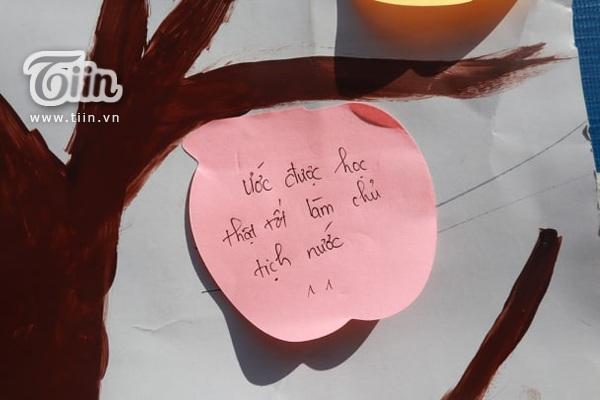 Tiin
www.tiin.vn
Ước được học
thật tốt làm chủ
tịch nước
^ ^